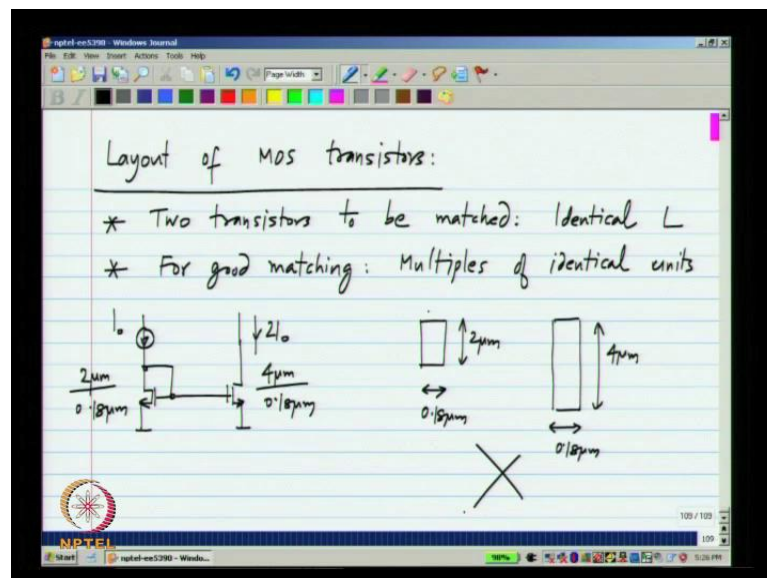 nptel-ee5390 - Windows Journal
File Edit View Insert Actions Tools Help
Page Width
B I
Layout of MOS transistors:
* Two transistors to be matched: Identical L
* For good matching: Multiples of identical units
I₀
2I₀
2μm
0.18μm
4μm
0.18μm
2μm
0.18μm
4μm
0.18μm
109 / 109
109
NPTEL
Start
nptel-ee5390 - Windo...
98%
5:26 PM